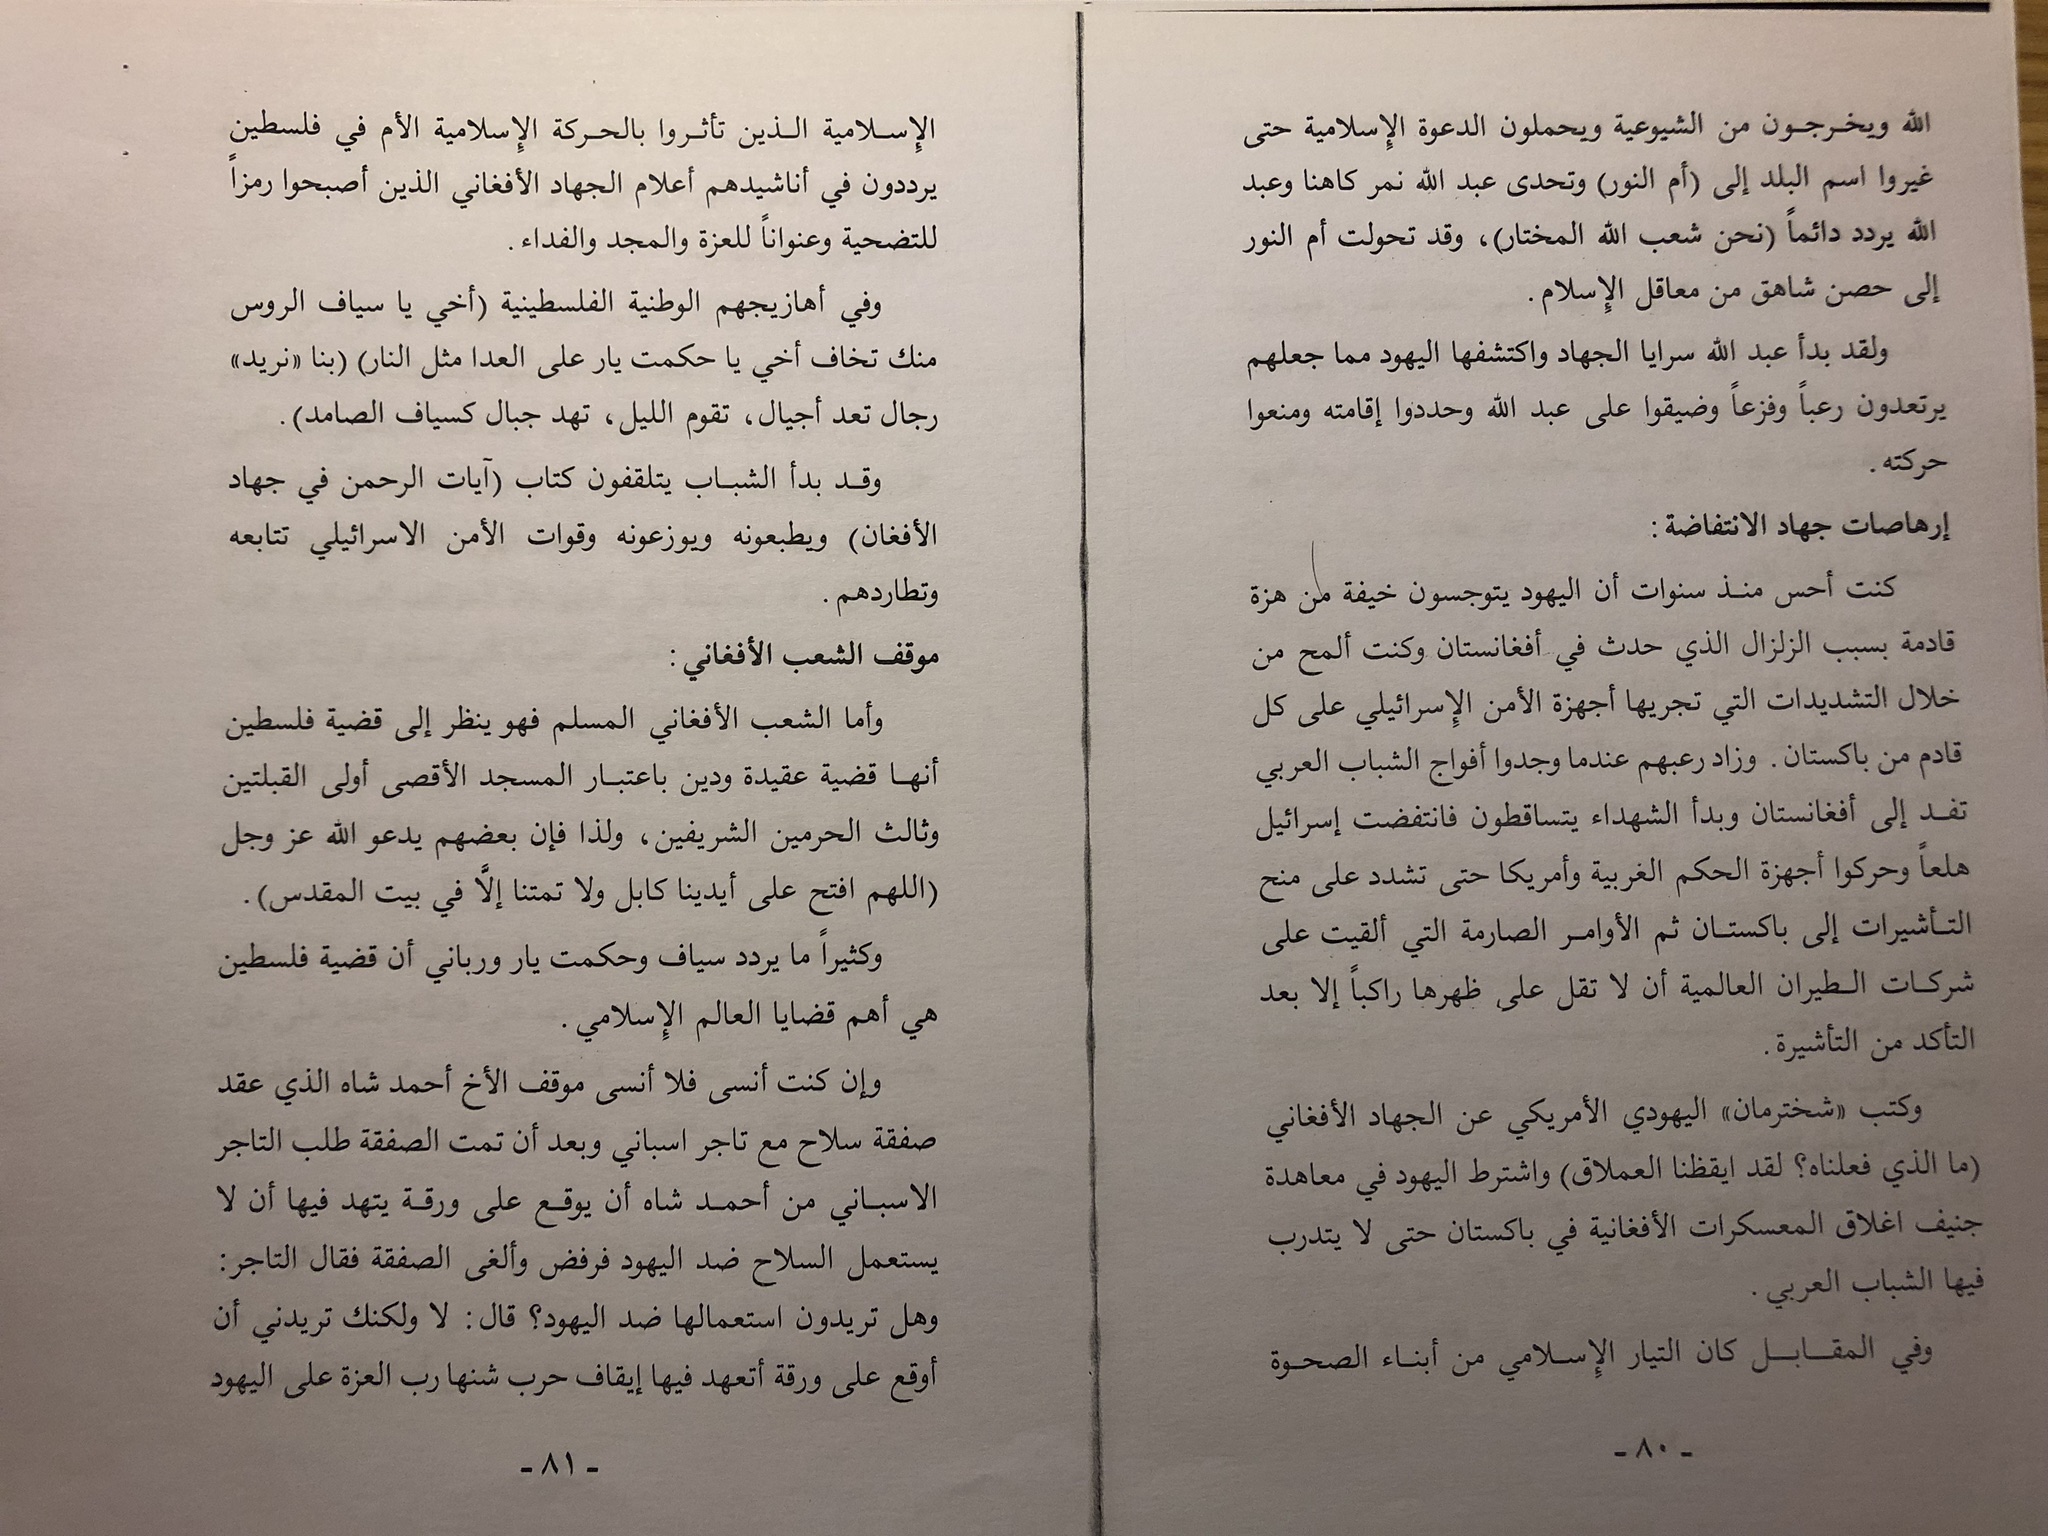 الله ويخـرجـون من الشيوعية ويحملون الدعوة الإِسلامية حتى
غيروا اسم البلد إلى (أم النور) وتحدى عبد الله نمر كاهنا وعبد
الله يردد دائماً (نحن شعب الله المختار)، وقد تحولت أم النور
إلى حصن شاهق من معاقل الإِسلام.
ولقد بدأ عبد الله سرايا الجهاد واكتشفها اليهود مما جعلهم
يرتعدون رعباً وفزعاً وضيقوا على عبد الله وحددوا إقامته ومنعوا
حركته.
إرهاصات جهاد الانتفاضة:
كنت أحس منـذ سنوات أن اليهود يتوجسون خيفة من هزة
قادمة بسبب الزلزال الذي حدث في أفغانستان وكنت ألمح من
خلال التشديدات التي تجريها أجهزة الأمن الإِسرائيلي على كل
قادم من باكستان. وزاد رعبهم عندما وجدوا أفواج الشباب العربي
تفـد إلى أفغانستان وبدأ الشهداء يتساقطون فانتفضت إسرائيل
هلعاً وحركوا أجهزة الحكم الغربية وأمريكا حتى تشدد على منح
التـأشيرات إلى باكستـان ثم الأوامـر الصارمة التي ألقيت على
شركـات الـطيران العالمية أن لا تقل على ظهرها راكباً إلا بعد
التأكد من التأشيرة.
وكتب «شخترمان» اليهودي الأمريكي عن الجهاد الأفغاني
(ما الذي فعلناه؟ لقد ايقظنا العملاق) واشترط اليهود في معاهدة
جنيف اغلاق المعسكرات الأفغانية في باكستان حتى لا يتدرب
فيها الشباب العربي.
وفي المقـابـل كان التيار الإِسـلامي من أبنـاء الصحـوة
- ٨٠ -
الإِسـلامية الـذين تأثـروا بالحـركة الإِسلامية الأم في فلسطين
يرددون في أناشيدهم أعلام الجهاد الأفغاني الذين أصبحوا رمزاً
للتضحية وعنواناً للعزة والمجد والفداء.
وفي أهازيجهم الوطنية الفلسطينية (أخي يا سياف الروس
منك تخاف أخي يا حكمت يار على العدا مثل النار) (بنا «نريد»
رجال تعد أجيال، تقوم الليل، تهد جبال كسياف الصامد).
وقـد بدأ الشبـاب يتلقفون كتاب (آيات الرحمن في جهاد
الأفغان) ويطبعونه ويوزعونه وقوات الأمن الاسرائيلي تتابعه
وتطاردهم.
موقف الشعب الأفغاني:
وأما الشعب الأفغاني المسلم فهو ينظر إلى قضية فلسطين
أنهـا قضية عقيدة ودين باعتبـار المسجد الأقصى أولى القبلتين
وثالث الحرمين الشريفين، ولذا فإن بعضهم يدعو الله عز وجل
(اللهم افتح على أيدينا كابل ولا تمتنا إلَّا في بيت المقدس).
وكثيراً ما يردد سياف وحكمت يار ورباني أن قضية فلسطين
هي أهم قضايا العالم الإِسلامي.
وإن كنت أنسى فلا أنسى موقف الأخ أحمد شاه الذي عقد
صفقة سلاح مع تاجر اسباني وبعد أن تمت الصفقة طلب التاجر
الاسبـاني من أحمـد شاه أن يوقـع على ورقـة يتهد فيها أن لا
يستعمل السلاح ضد اليهود فرفض وألغى الصفقة فقال التاجر:
وهل تريدون استعمالها ضد اليهود؟ قال: لا ولكنك تريدني أن
أوقع على ورقة أتعهد فيها إيقاف حرب شنها رب العزة على اليهود
- ٨١ -